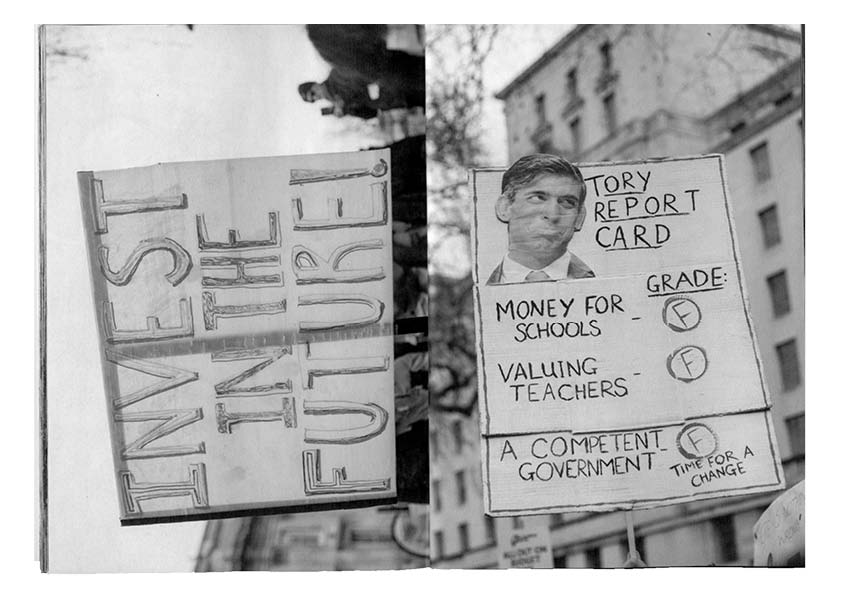 INVEST
IN THE
FUTURE!
TORY
REPORT
CARD
GRADE:
MONEY FOR
SCHOOLS - F
VALUING
TEACHERS - F
A COMPETENT
GOVERNMENT - F
TIME FOR A
CHANGE